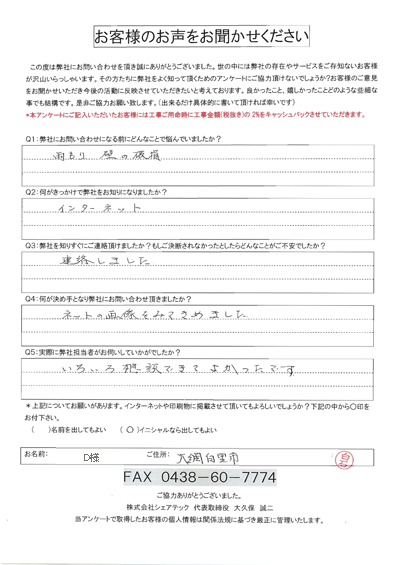 お客様のお声をお聞かせください
この度は弊社にお問い合わせを頂き誠にありがとうございました。世の中には弊社の存在やサービスをご存知ないお客様
が沢山いらっしゃいます。その方たちに弊社をよく知って頂くためのアンケートにご協力頂けないでしょうか?お客様のご意見
をお聞かせいただき今後の活動に反映させていただきたいと考えております。良かったこと、嬉しかったことどのような些細な
事でも結構です。是非ご協力お願い致します。(出来るだけ具体的に書いて頂ければ幸いです)
*本アンケートにご記入いただいたお客様には工事ご用命時に工事金額(税抜き)の2%をキャッシュバックさせていただきます。
Q1:弊社にお問い合わせになる前にどんなことで悩んでいましたか?
雨もり 壁の破損
Q2:何がきっかけで弊社をお知りになりましたか?
インターネット
Q3:弊社を知りすぐにご連絡頂けましたか?もしご決断されなかったとしたらどんなことがご不安でしたか?
連絡しました
Q4:何が決め手となり弊社にお問い合わせ頂きましたか?
ネットの画像をみてきめました
Q5:実際に弊社担当者がお伺いしていかがでしたか?
いろいろ相談できてよかったです
*上記についてお願いがあります。インターネットや印刷物に掲載させて頂いてもよろしいでしょうか?下記の中から〇印を
お付下さい。
( )名前を出してもよい (〇)イニシャルなら出してもよい
お名前: D様 ご住所: 大網白里市
白石
FAX 0438-60-7774
ご協力ありがとうございました。
株式会社シェアテック 代表取締役 大久保 誠二
当アンケートで取得したお客様の個人情報は関係法規に基づき厳正に管理いたします。